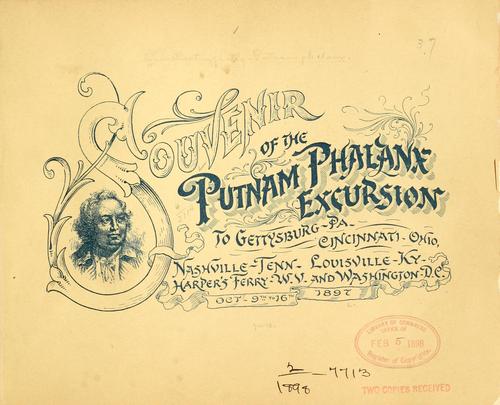 3.7
Souvenir
of the
Putnam Phalanx
Excursion
To Gettysburg-Pa-
Cincinnati-Ohio,
Nashville-Tenn- Louisville-Ky-
Harper's Ferry-W.V. and Washington-D.C.
Oct-9th to 16th 1897
Library of Congress
Office of
Feb 5 1898
Register of Copyrights
2-7713
1898
TWO COPIES RECEIVED